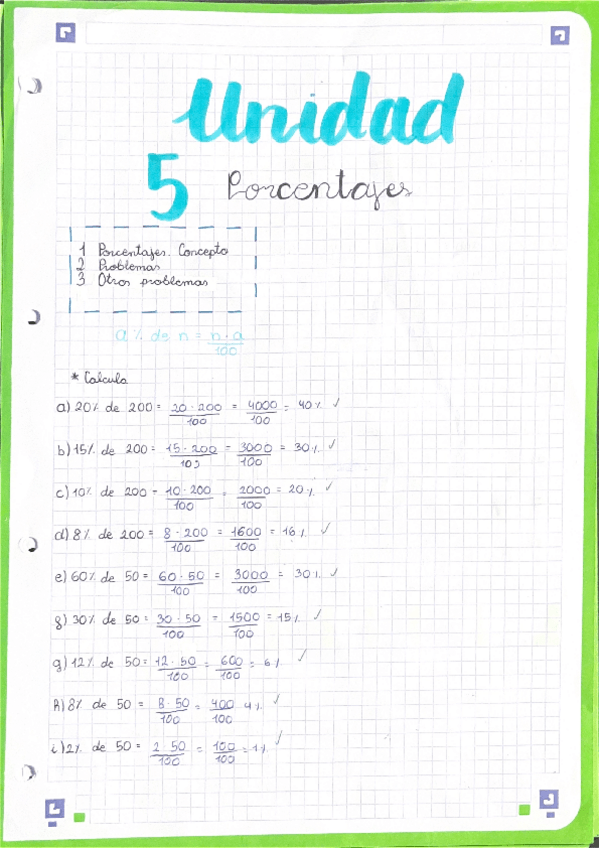 Unidad
5 Porcentajes
1 Porcentajes. Concepto
2 Problemas
3 Otros problemas
a % de n = n · a / 100
* Calcula
a) 20% de 200 = 20 · 200 / 100 = 4000 / 100 = 40% ✓
b) 15% de 200 = 15 · 200 / 100 = 3000 / 100 = 30% ✓
c) 10% de 200 = 10 · 200 / 100 = 2000 / 100 = 20% ✓
d) 8% de 200 = 8 · 200 / 100 = 1600 / 100 = 16% ✓
e) 60% de 50 = 60 · 50 / 100 = 3000 / 100 = 30% ✓
f) 30% de 50 = 30 · 50 / 100 = 1500 / 100 = 15% ✓
g) 12% de 50 = 12 · 50 / 100 = 600 / 100 = 6% ✓
h) 8% de 50 = 8 · 50 / 100 = 400 / 100 4% ✓
i) 2% de 50 = 2 50 / 100 = 100 / 100 = 1% ✓